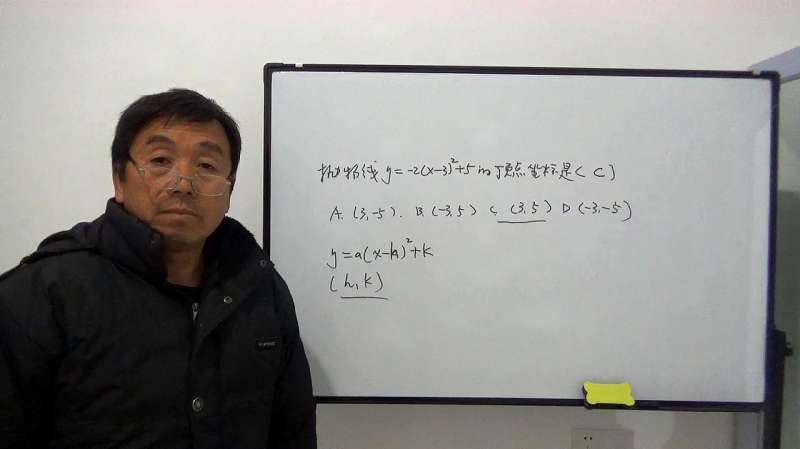 抛物线 y=-2(x-3)²+5 的顶点坐标是( C )
A. (3,-5). B. (-3,5) C. (3,5) D (-3,-5)
y=a(x-h)²+k
(h,k)